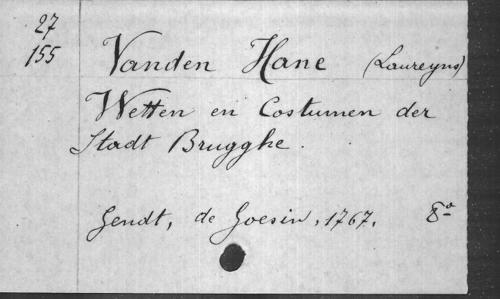 27
155
Vanden Hane (Laureyns)
Wetten en Costumen der
Stadt Brugghe.
Gendt, de Goesin, 1767. 8º